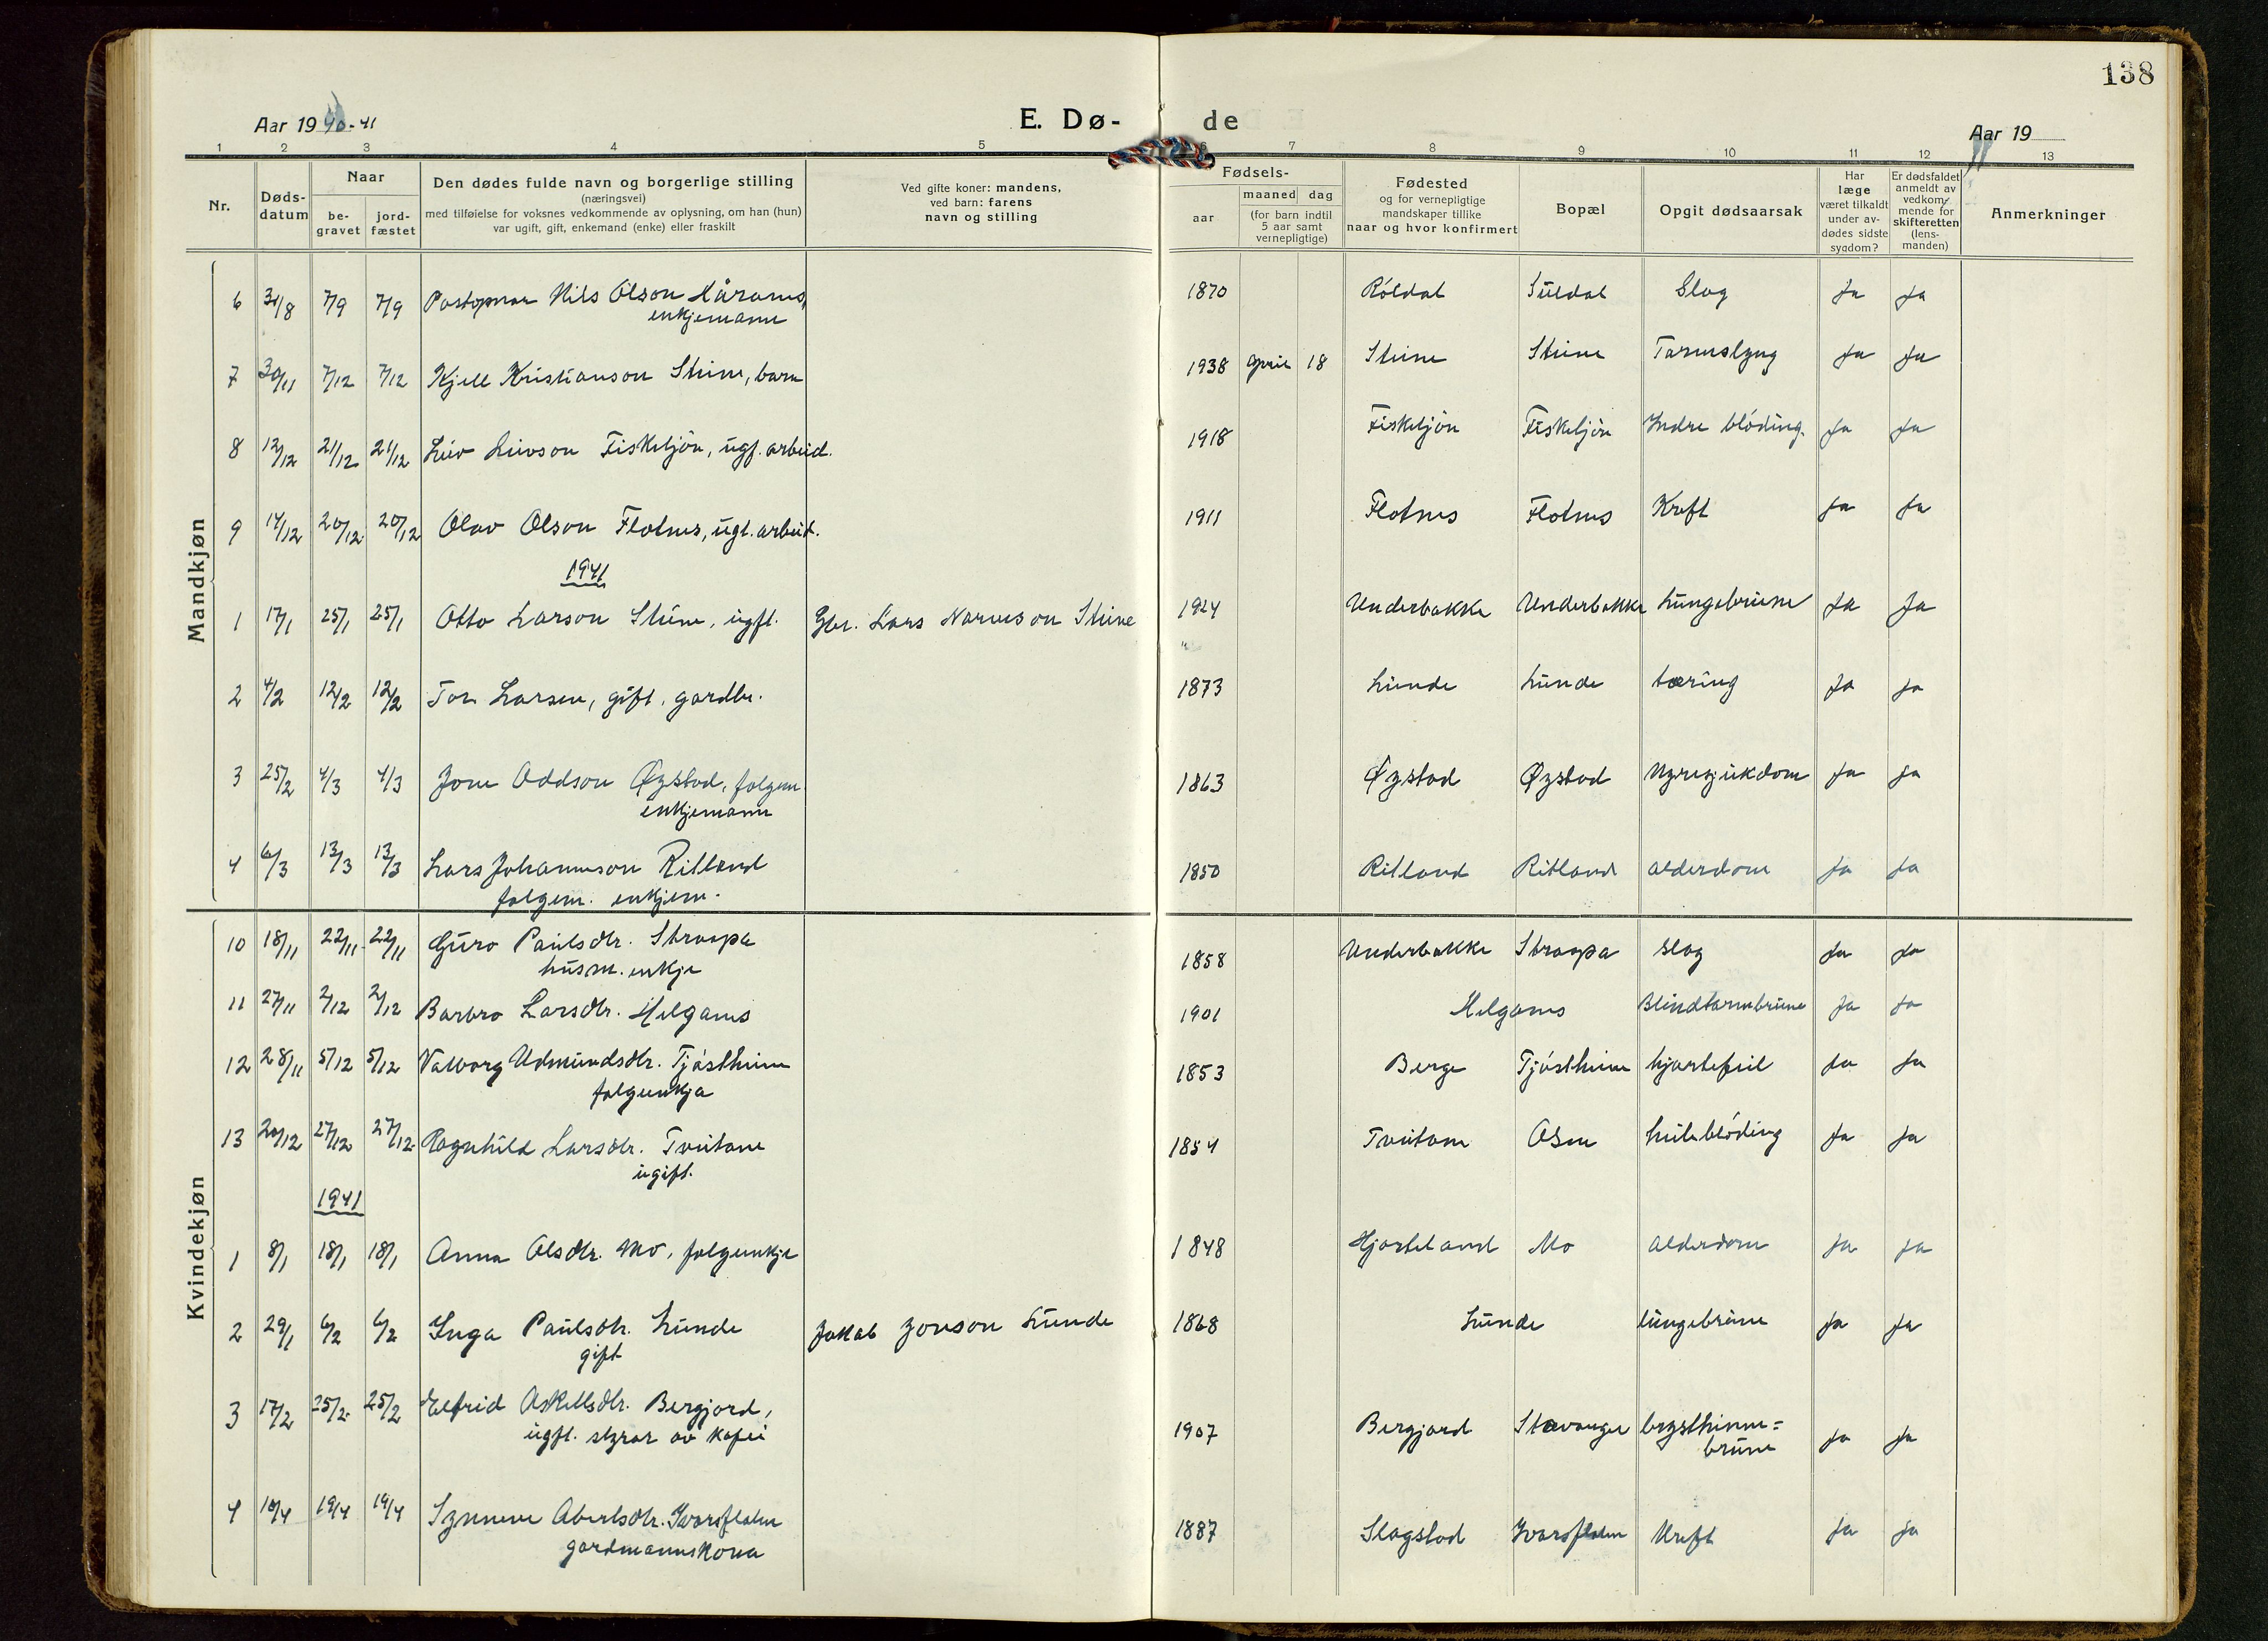 138
Aar 1940-41
E. Dø-
de
Aar 19
1 2 3 4 5 6 7 8 9 10 11 12 13
Nr.
Døds-
datum
Naar
be-
gravet
jord-
fæstet
Den dødes fulde navn og borgerlige stilling
(næringsvei)
med tilføielse for voksnes vedkommende av oplysning, om han (hun)
var ugift, gift, enkemand (enke) eller fraskilt
Ved gifte koner: mandens,
ved barn: farens
navn og stilling
Fødsels-
aar
maaned dag
(for barn indtil
5 aar samt
vernepligtige)
Fødested
og for vernepligtige
mandskaper tillike
naar og hvor konfirmert
Bopæl
Opgit dødsaarsak
Har
læge
været tilkaldt
under av-
dødes sidste
sygdom?
Er dødsfaldet
anmeldt av
vedkom-
mende for
skifteretten
(lens-
manden)
Anmerkninger
Mandkjøn
6 31/8 7/9 7/9 Postopnar Nils Olson Håranes, 1870 Röldal Suldal Slag Ja Ja
enkjemann
7 30/11 7/12 7/12 Kjell Kristianson Steine, barn 1938 April 18 Steine Steine Tarmslyng Ja Ja
8 12/12 21/12 21/12 Leiv Leivson Fiskeljön, ugf. arbeid. 1918 Fiskeljön Fiskeljön Indre blöding. Ja Ja
9 14/12 20/12 20/12 Olav Olson Flotnes, ugt. arbeid. 1911 Flotnes Flotnes Kreft Ja Ja
1941
1 17/1 25/1 25/1 Otto Larson Steine, ugft. Gbr. Lars Narveson Steine 1924 Underbakke Underbakke Lungebrune Ja Ja
2 4/2 12/2 12/2 Tor Larsen, gift, gardbr. 1873 Lunde Lunde tæring Ja Ja
3 25/2 4/3 4/3 Jone Oddson Øystad, folgem. 1863 Øystad Øystad Nyresjukdom Ja Ja
enkjemann
4 6/3 13/3 13/3 Lars Johannesson Ritland 1850 Ritland Ritland alderdom Ja Ja
folgem. enkjem.
Kvindekjøn
10 18/11 22/11 22/11 Guro Paulsdtr. Straapa 1858 Underbakke Straapa slag Ja Ja
husm. enkje
11 27/11 2/12 2/12 Barbro Larsdtr. Helganes 1901 Helganes Blindtarmbrune Ja Ja
12 28/11 5/12 5/12 Valborg Udmundsdtr. Tjöstheim 1853 Berge Tjöstheim hjartefeil Ja Ja
folgeenkja
13 20/12 27/12 27/12 Ragnhild Larsdtr. Tveitane 1854 Tveitane Osen heileblöding Ja Ja
ugift.
1941
1 8/1 18/1 18/1 Anna Olsdtr. Mo, folgeenkje 1848 Hjorteland Mo Alderdom Ja Ja
2 29/1 6/2 6/2 Inga Paulsdtr. Lunde Jakob Jonson Lunde 1868 Lunde lungebrune Ja Ja
gift
3 17/2 25/2 25/2 Elfrid Askellsdtr. Bergjord, 1907 Bergjord Stavanger brysthinne=
ugft. styrar av kafei brune Ja Ja
4 10/4 19/4 19/4 Synneve Abertsdtr. Ivarsflaten 1887 Slagstad Ivarsflaten Kreft Ja Ja
gardmannskona